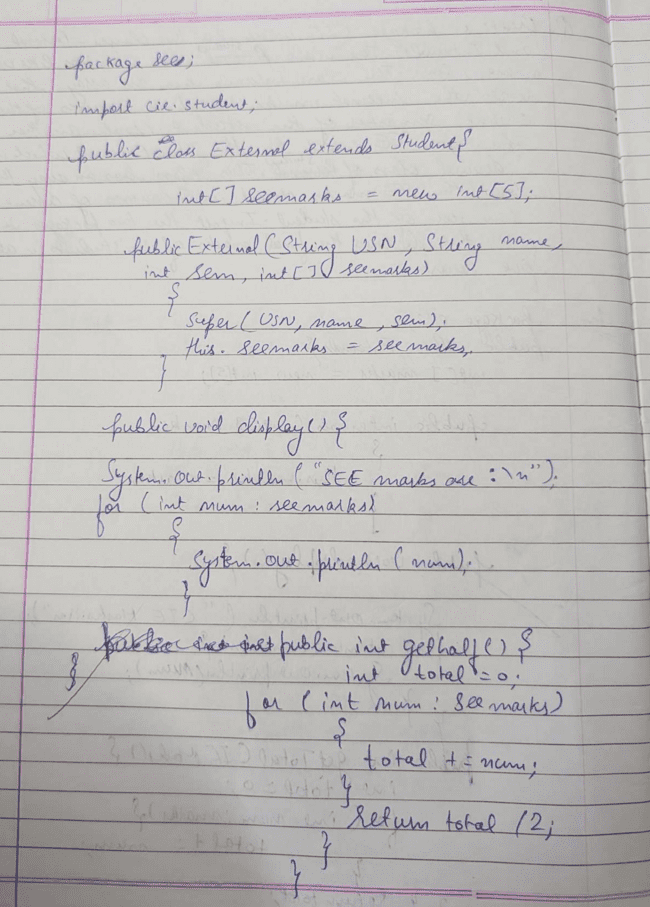 package see;
import cie.student;
public class External extends Student{
int[] seemarks = new int[5];
public External(String USN, String name,
int sem, int[] seemarks)
{
super(USN, name, sem);
this.seemarks = seemarks;
}
public void display(){
System.out.println("SEE marks are :\n");
for (int num : seemarks)
{
System.out.println(num);
}
public int gethalf(){
}
int total = 0;
for (int num : seemarks)
{
total += num;
}
return total /2;
}
}